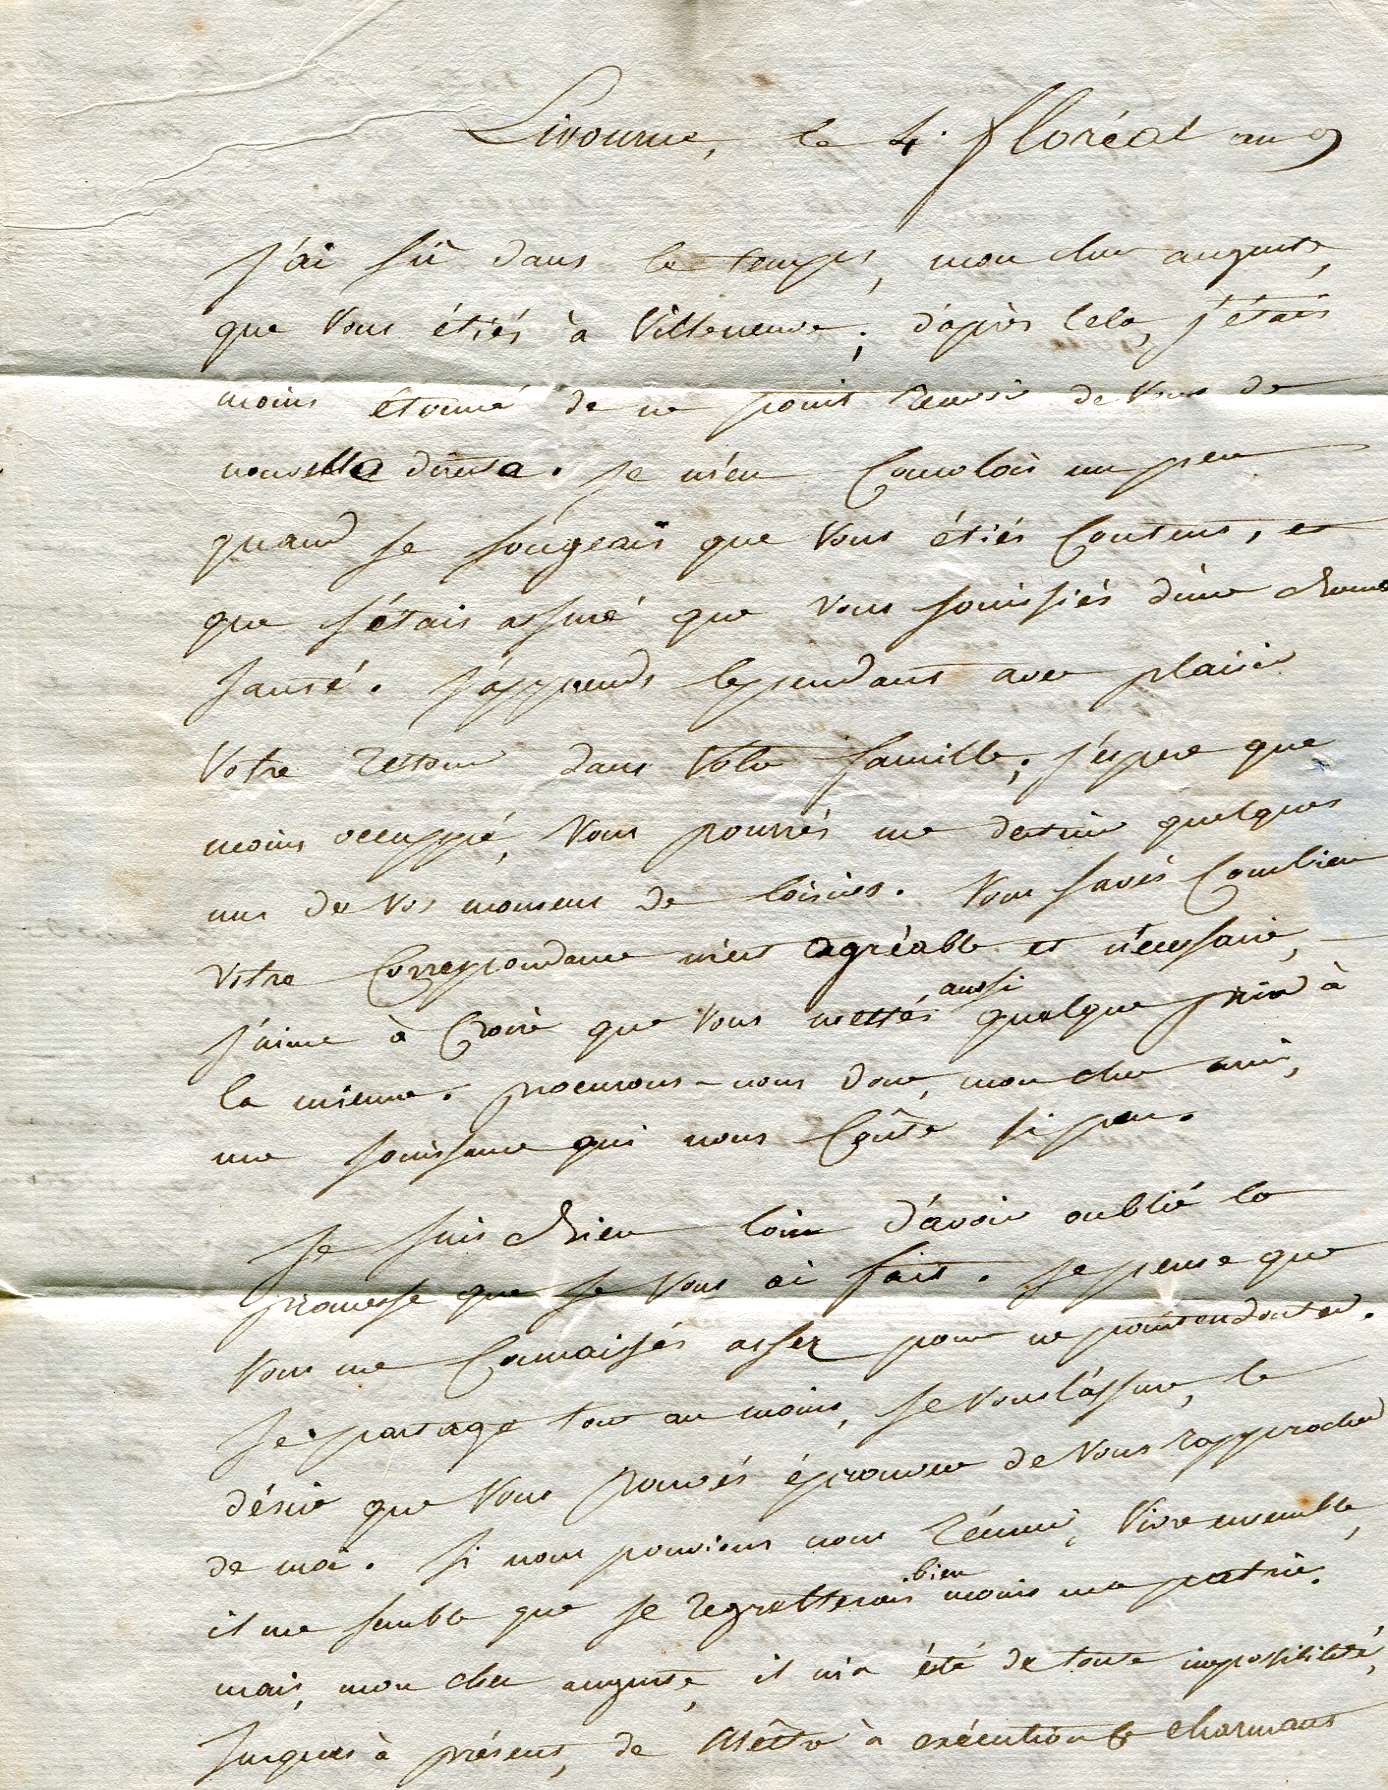 Livourne, le 4. floréal an 9
J'ai sû dans le temps, mon cher auguste,
que vous étiés à Villeneuve; d'après cela, j'étais
moins étonné de ne point recevoir de vous de
nouvelle directe. Je m'en consolais un peu
quand je songeais que vous étiés content, et
que j'étais assuré que vous jouissiés d'une bonne
santé. J'apprends cependant avec plaisir
votre retour dans votre famille; j'espere que
moins occuppé, vous pourrés me destiner quelques
uns de vos momens de loisirs. Vous savés combien
votre correspondance m'est agréable et nécessaire,
j'aime à croire que vous mettés aussi quelque prix à
la mienne. procurons-nous donc, mon cher ami,
une jouissance qui nous coûte si peu.
Je suis bien loin d'avoir oublié la
promesse que je vous ai fait. Je pense que
vous me connaissés assez pour ne point en douter.
Je partage tout au moins, je vous l'assure, le
désir que vous pouvés éprouver de vous rapprocher
de moi. Si nous pouvions nous réunir, vivre ensemble,
il me semble que je regretterais bien moins ma patrie.
mais, mon cher auguste, il m'a été de toute impossibilité,
jusques à présent, de mettre à exécution le charmant